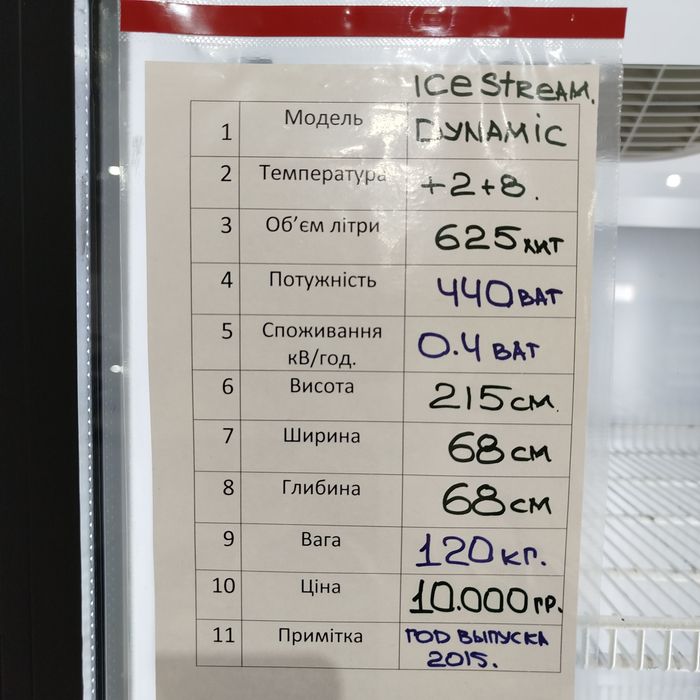 ICE STREAM.
1 Модель DYNAMIC
2 Температура +2+8.
3 Об'єм літри 625 лит
4 Потужність 440 ВАТ
5 Споживання кВ/год. 0.4 ВАТ
6 Висота 215 см.
7 Ширина 68 см
8 Глибина 68 см
9 Вага 120 кг.
10 Ціна 10.000 гр.
11 Примітка ГОД ВЫПУСКА
2015.